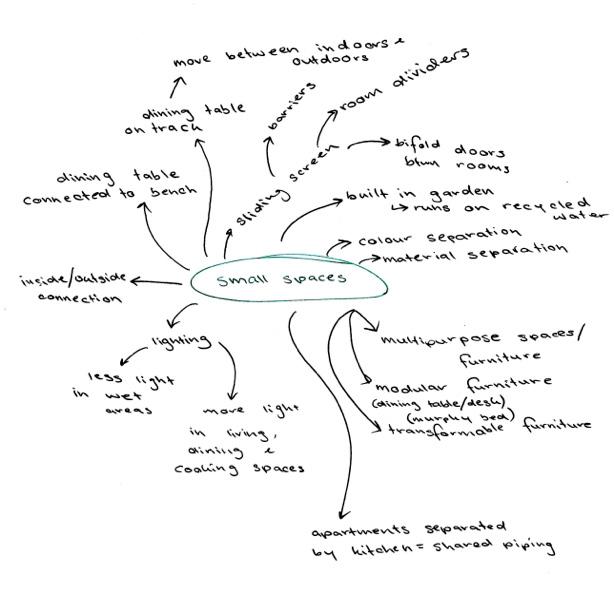 move between indoors &
outdoors
dining table
on track
barriers
room dividers
sliding screen
bifold doors
btwn rooms
dining table
connected to bench
built in garden
↳ runs on recycled
water
colour separation
material separation
small spaces
inside/outside
connection
lighting
less light
in wet
areas
move light
in living,
dining &
cooking spaces
multipurpose spaces/
furniture
modular furniture
(dining table/desk)
(murphy bed)
transformable furniture
apartments separated
by kitchen = shared piping